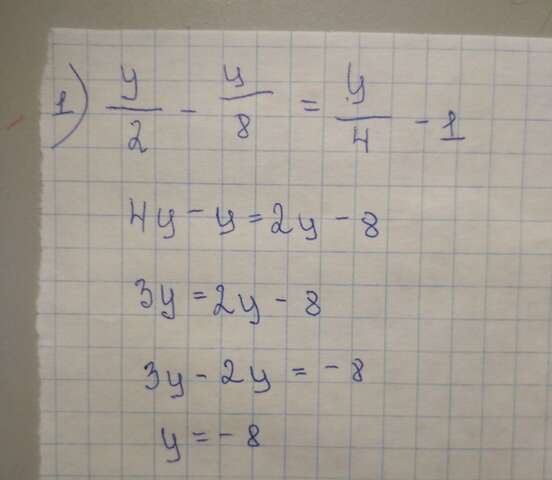 1) y/2 - y/8 = y/4 - 1
4y - y = 2y - 8
3y = 2y - 8
3y - 2y = - 8
y = - 8